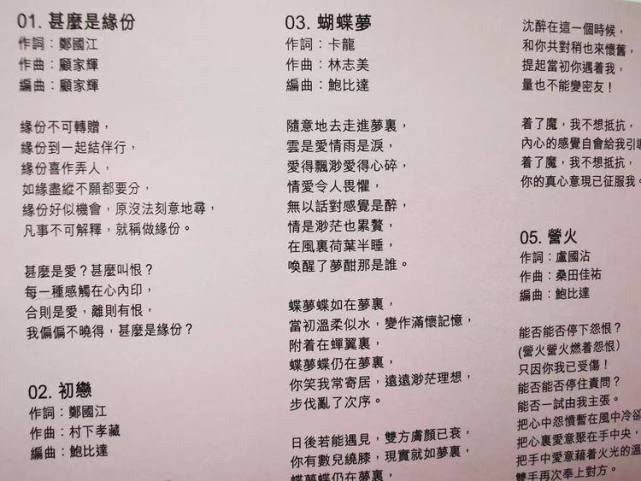 01. 甚麼是緣份
作詞：鄭國江
作曲：顧家輝
編曲：顧家輝
緣份不可轉贈，
緣份到一起結伴行，
緣份喜作弄人，
如緣盡縱不願都要分，
緣份好似機會，原沒法刻意地尋，
凡事不可解釋，就稱做緣份。
甚麼是愛？甚麼叫恨？
每一種感觸在心內印，
合則是愛，離則有恨，
我偏偏不曉得，甚麼是緣份？
02. 初戀
作詞：鄭國江
作曲：村下孝藏
編曲：鮑比達
03. 蝴蝶夢
作詞：卡龍
作曲：林志美
編曲：鮑比達
隨意地去走進夢裏，
雲是愛情雨是淚，
愛得飄渺愛得心碎，
情愛令人畏懼，
無以話對感覺是醉，
情是渺茫也累贅，
在風裏荷葉半睡，
喚醒了夢酣那是誰。
蝶夢蝶如在夢裏，
當初溫柔似水，變作滿懷記憶，
附着在蟬翼裏，
蝶夢蝶仍在夢裏，
你笑我常寄居，遠遠渺茫理想，
步伐亂了次序。
日後若能遇見，雙方膚顏已衰，
你有數兒繞膝，現實就如夢裏，
蝶夢蝶仍在夢裏，
沈醉在這一個時候，
和你共對稍也來懷舊，
提起當初你遇着我，
量也不能變密友！
着了魔，我不想抵抗，
內心的感覺自會給我引導
着了魔，我不想抵抗，
你的真心意現已征服我。
05. 營火
作詞：盧國沾
作曲：桑田佳祐
編曲：鮑比達
能否能否停下怨恨？
(營火營火燃着怨恨)
只因你我已受傷！
能否能否停住責問？
能否一試由我主張。
把心中怨憤暫在風中冷卻
把心裏愛意聚在手中央，
把手中愛意藉着火光的溫
雙手再次奉上對方。